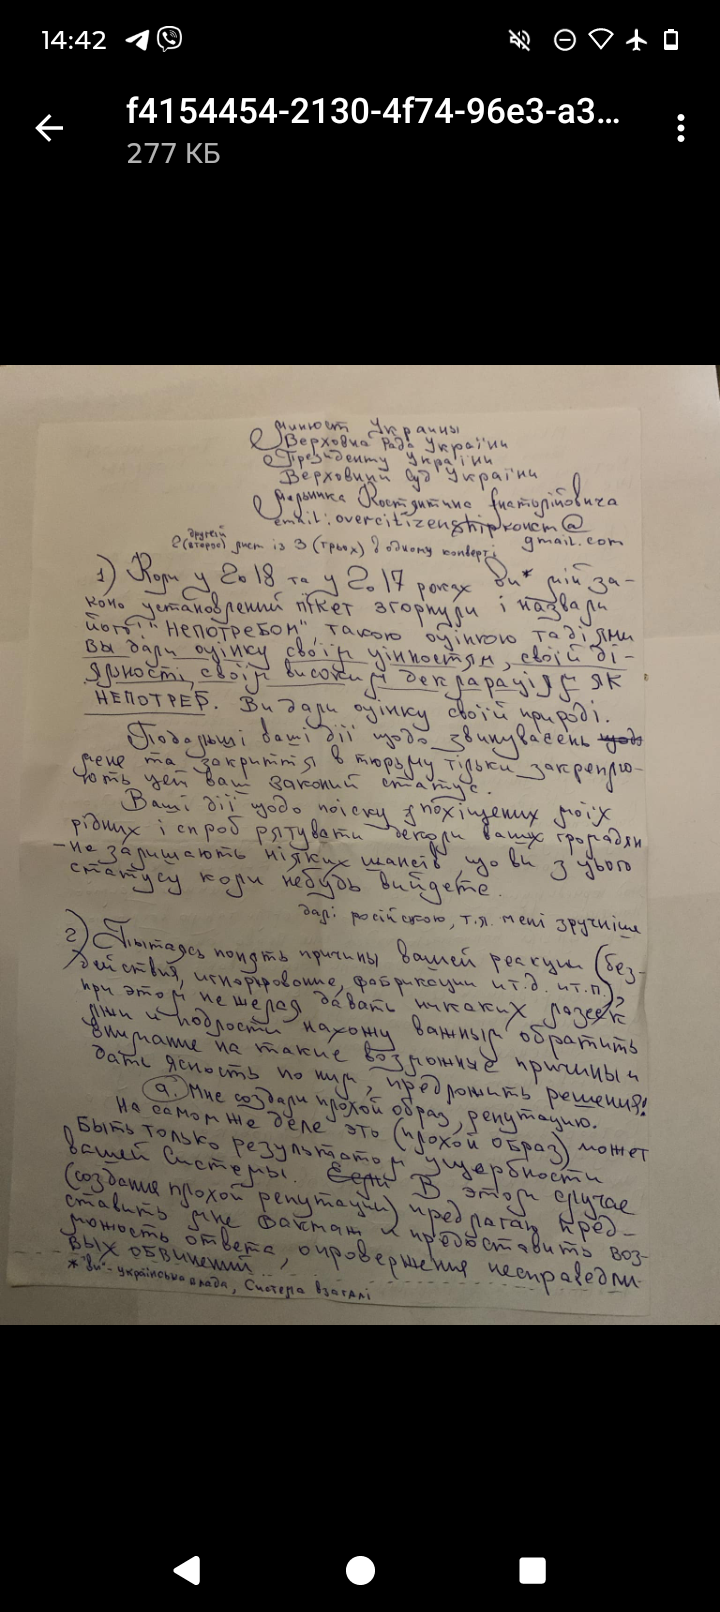 14:42
f4154454-2130-4f74-96e3-a3...
277 КБ
Минюст Украины
Верховна Рада України
Президенту України
Верховний Суд України
Мельника Костянтина Анатолійовича
email: overcitizenshipконст@
gmail.com
другий
2 (второе) лист із 3 (трьох) в одному конверті
1) Коли у 2018 та у 2017 роках ви* мій за-
коно установлений пікет згорнули і назвали
його: "НЕПОТРЕБОМ", такою оцінкою та діями
вы дали оцінку своїм цінностям, своїй ді-
яльності, своїм високим деклараціям як
НЕПОТРЕБ. Ви дали оцінку своїй природі.
Подальші ваші дії щодо звинувачень щодо
мене та закриття в тюрьму тільки закреплю-
ють цей ваш законий статус.
Ваші дії щодо поіску похіщених моїх
рідних і спроб рятувати деколи ваших громадян
- не залишають ніяких шансів, що ви з цього
статусу коли небудь вийдете.
далі російською, т.я. мені зручніше
2) Пытаясь понять причины вашей реакции (без-
действия, игнорирование, фабрикации и т.д. и т.п.),
при этом не желая давать никаких лазеек
лжи и подлости нахожу важным обратить
внимание на такие возможные причины и
дать ясность по ним, предложить решения:
а. Мне создали плохой образ, репутацию.
На самом же деле это (плохой образ) может
быть только результатом ущербности
вашей Системы. Если В этом случае
(создания плохой репутации) предлагаю пред-
ставить мне факты и предоставить воз-
можность ответа, опровержения несправедли-
вых обвинений
* "ви" - українська влада, Система взагалі